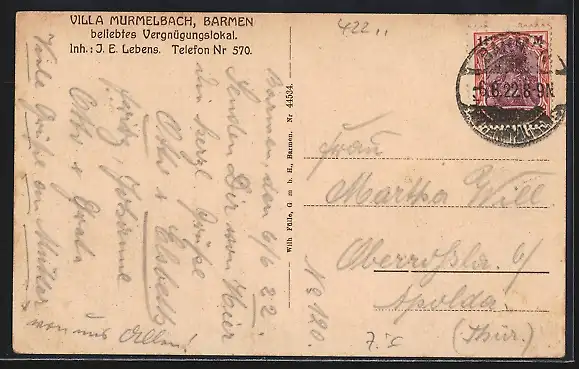 VILLA MURMELBACH, BARMEN
beliebtes Vergnügungslokal.
Inh.: J. E. Lebens. Telefon Nr 570.
422
Barmen den 6/6 22.
Senden Dir von Hier
die herzl Grüße
Otto & Elsbeth
Fritz Johanne
Otto & Greta
Viele Grüße an Mutter
von uns Allen!
Wilh Fülle, G m b H., Barmen. Nr 44534.
M
6.22.8-9N
Frau
Martha Will
Oberroßla 6/
Apolda
(Thür.)
No 120